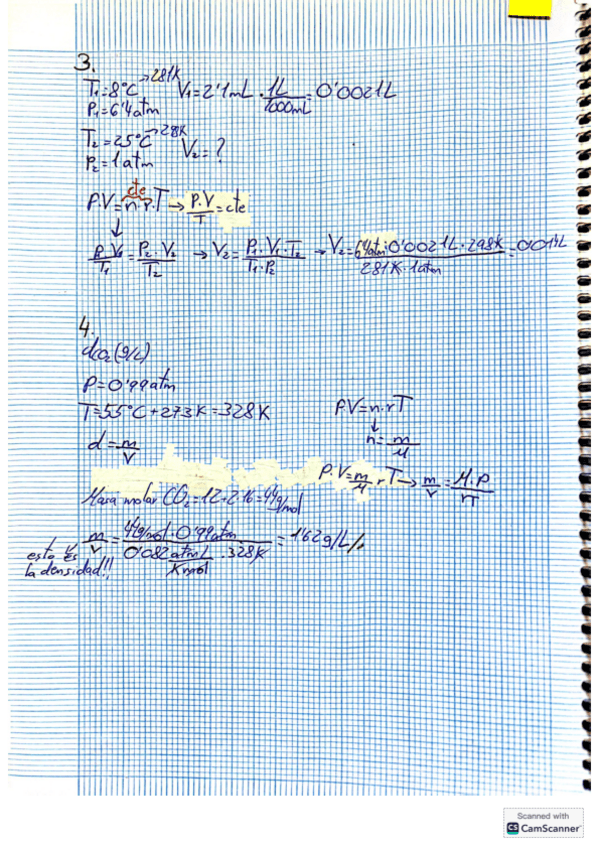 3.
T₁=8°C →281K V₁=2'1mL · 1L/1000mL = 0'0021L
P₁=6'4atm
T₂=25°C →28K V₂=?
P₂=1atm
cte
P.V=n.r.T → P.V/T = cte
↓
P.V₁/T₁ = P₂.V₂/T₂ → V₂ = P₁.V₁.T₂/T₁.P₂ → V₂ = 6'4atm.0'0021L.298K/281K.1atm = 0'014L
4.
dco₂(g/L)
P=0'99atm
T=55°C+273K=328K
P.V=n.rT
↓
d=m/V
n=m/M
P.V=m/M rT → m/V = M.P/rT
Masa molar CO₂=12+2·16=44g/mol
m/V = 44g/mol·0'99atm/0'082 atmL/Kmol ·328K = 1'62g/L
esto es
la densidad!!
Scanned with
CS CamScanner